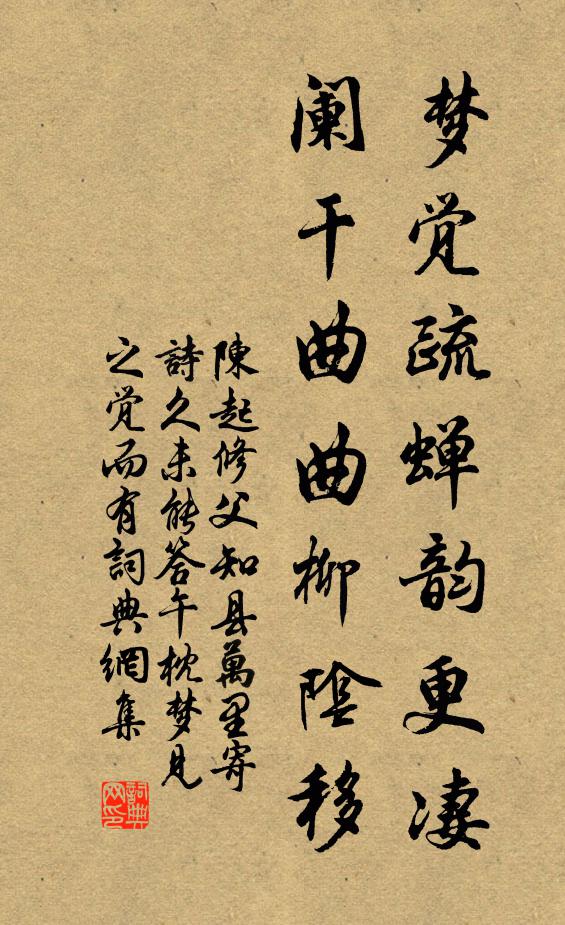 梦觉疏蝉韵更凄
阑干曲曲柳阴移
陳起修父知县萬里寄
詩久未能答午枕梦见
之觉而有詞典網集
詞典网印